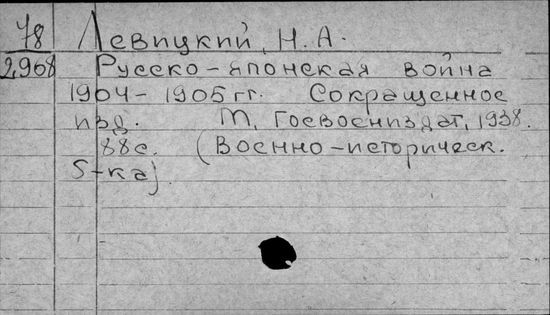 78 Левицкий, Н. А.
2,968 Русско-японская война
1904-1905 гг. Сокращенное
изд. М, Госвоениздат, 1938.
88с. (Военно-историческ.
б-ка)